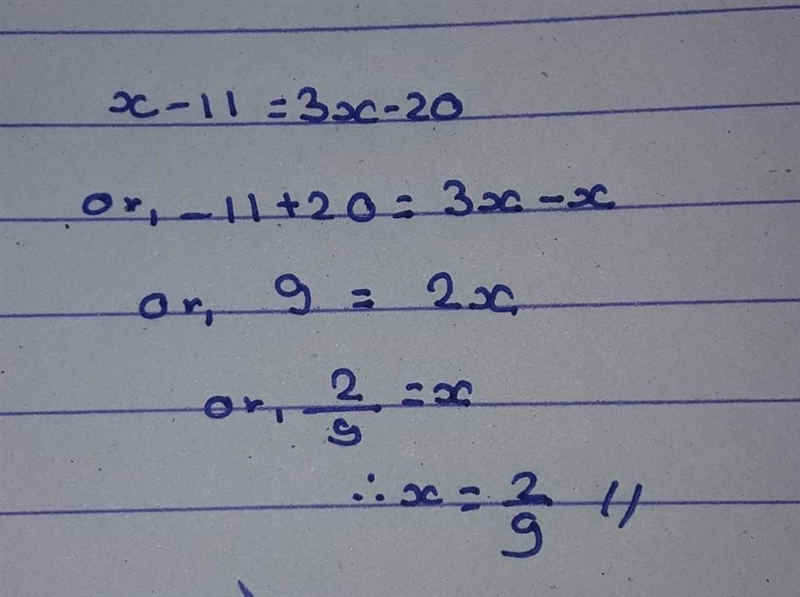 x - 11 = 3x - 20
or, -11 + 20 = 3x - x
or, 9 = 2x
or, 2/9 = x
∴ x = 2/9 //